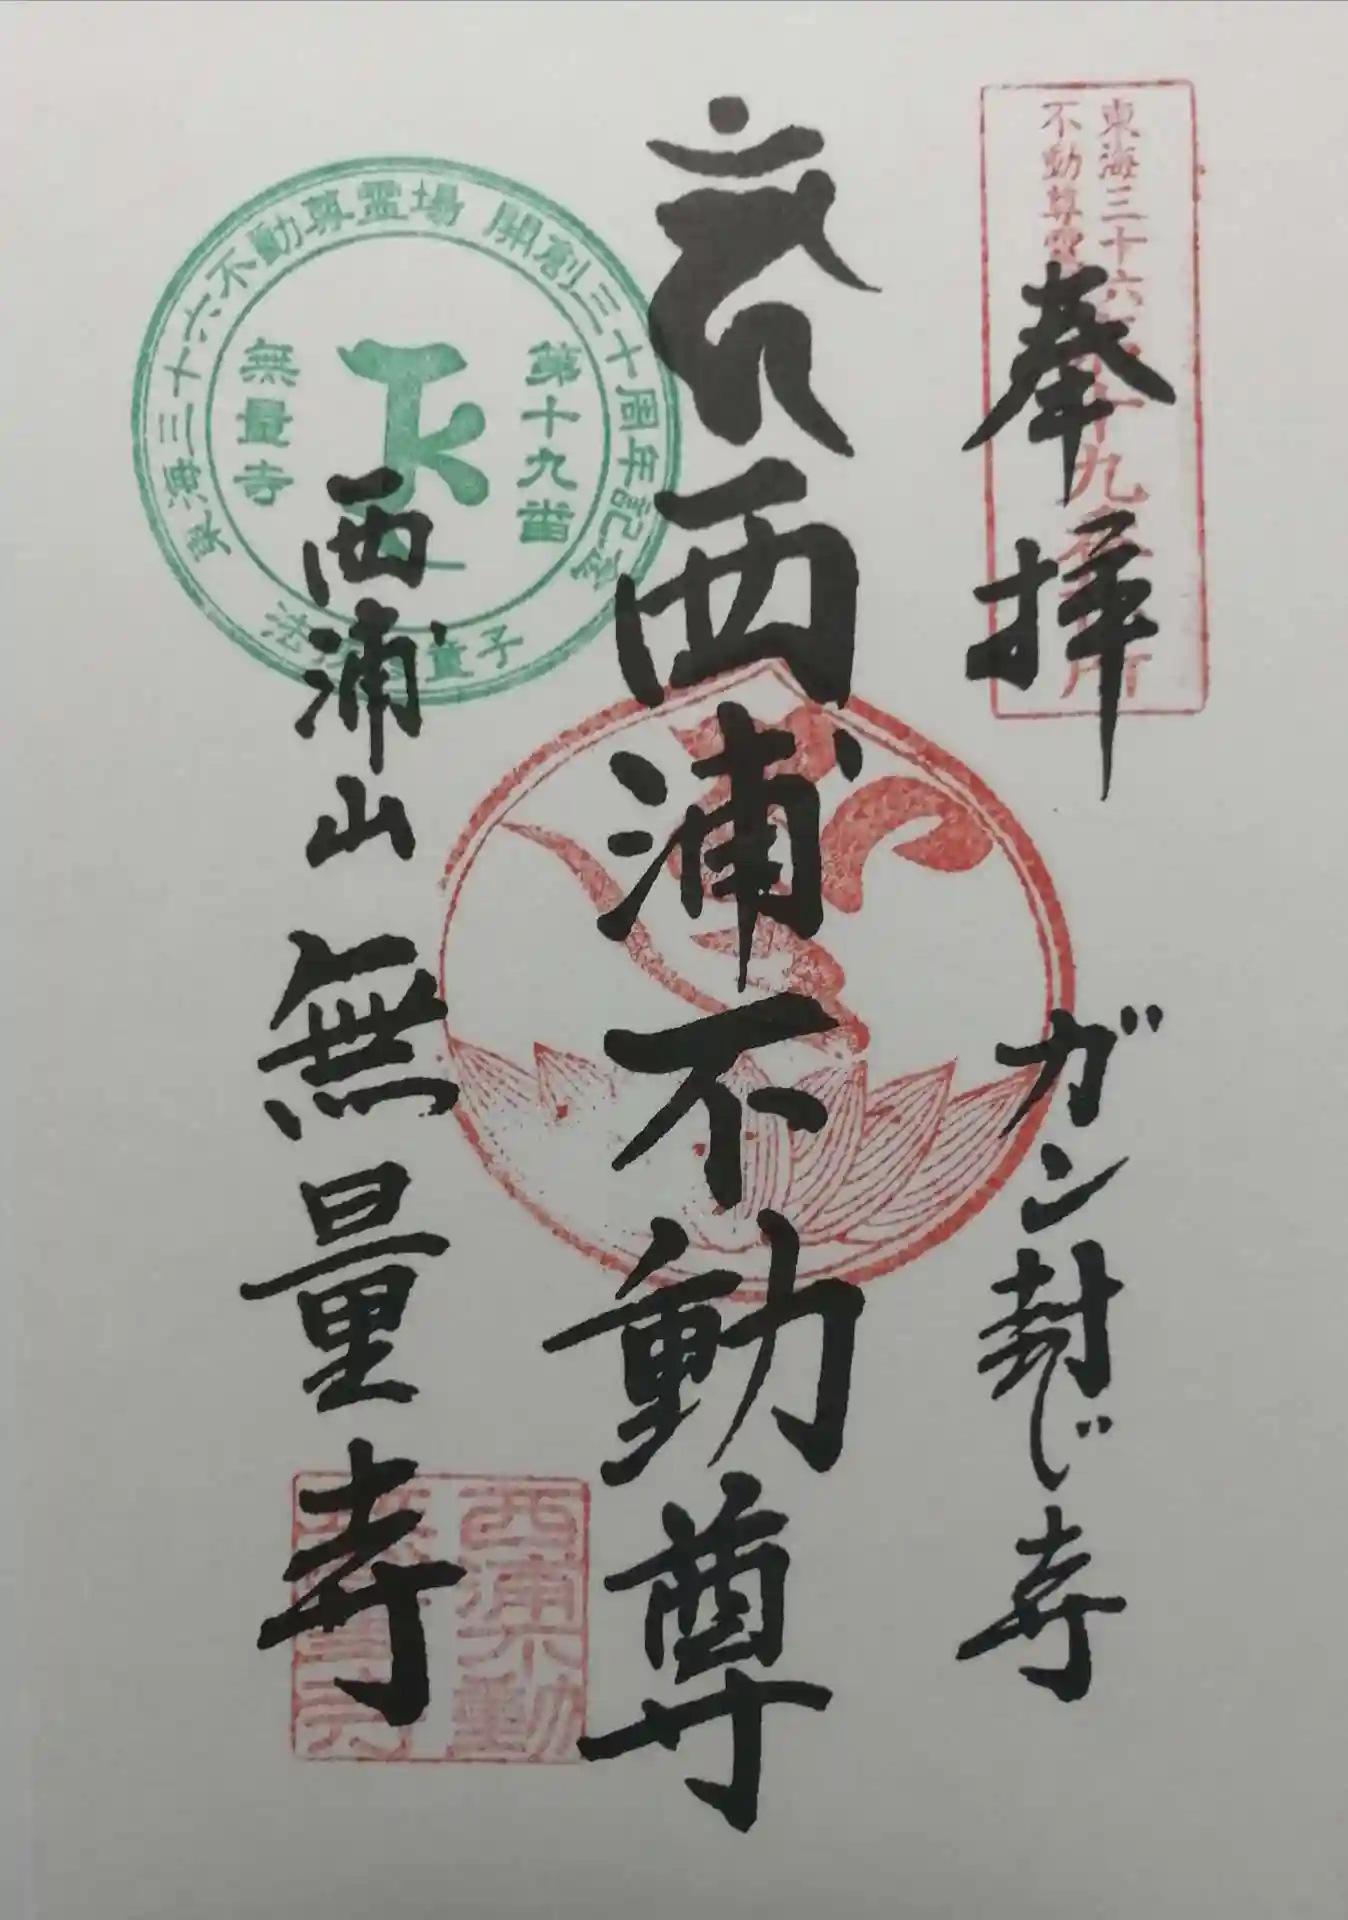 東海三十六
不動尊霊
九
奉拝
ガン封じ寺
西浦不動尊
東海三十六不動尊霊場 開創三十周年記念
第十九番
無量寺
童子
西浦山 無量寺
西浦不動